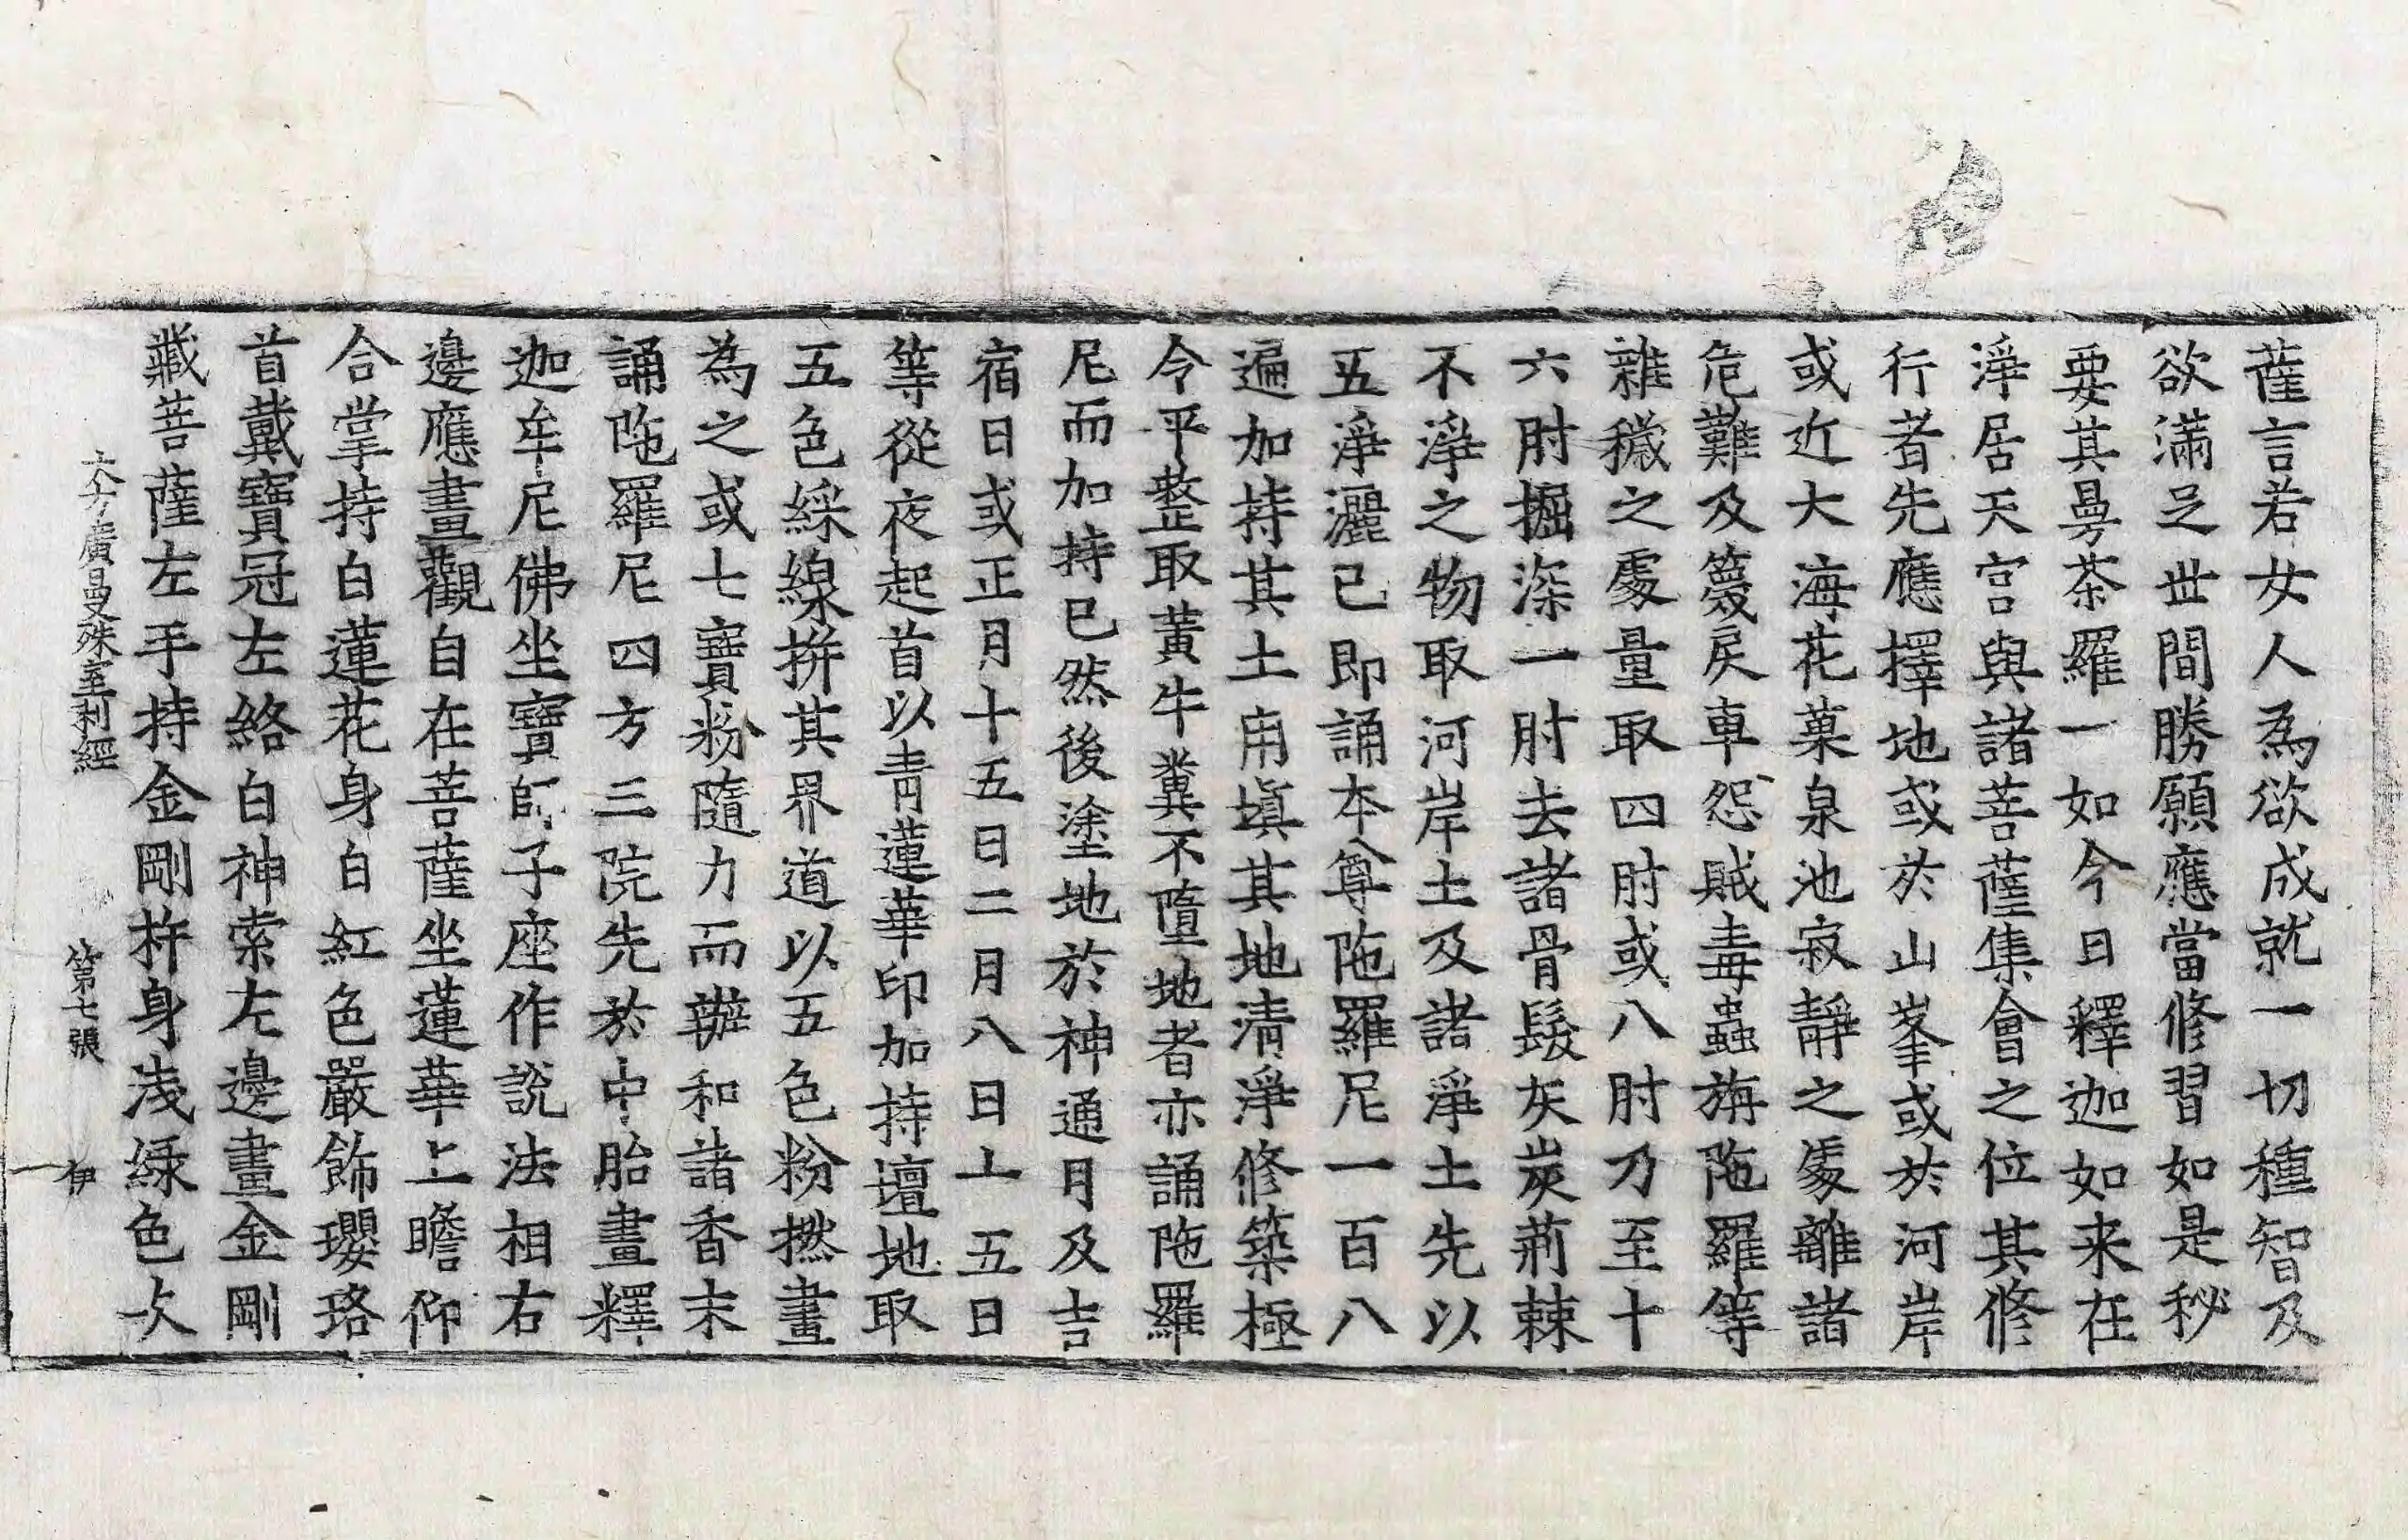 薩言若女人為欲成就一切種智及
欲滿足世間勝願應當修習如是秘
要其曼茶羅一如今日釋迦如来在
淨居天宮與諸菩薩集會之位其修
行者先應擇地或於山峯或於河岸
或近大海花菓泉池寂靜之處離諸
危難及籆戾車怨賊毒蟲旃陁羅等
雜穢之處量取四肘或八肘乃至十
六肘掘深一肘去諸骨髮灰炭荊棘
不淨之物取河岸土及諸淨土先以
五淨灑已即誦本尊陁羅尼一百八
遍加持其土用塡其地清淨修築極
令平整取黃牛糞不墮地者亦誦陁羅
尼而加持已然後塗地於神通月及吉
宿日或正月十五日二月八日十五日
等從夜起首以青蓮華印加持壇地取
五色綵線拼其界道以五色粉撚畫
為之或七寶粉隨力而辦和諸香末
誦陁羅尼四方三院先於中胎畫釋
迦牟尼佛坐寶師子座作說法相右
邊應畫觀自在菩薩坐蓮華上瞻仰
合掌持白蓮花身白紅色嚴飾瓔珞
首戴寶冠左絡白神索左邊畫金剛
藏菩薩左手持金剛杵身淺緑色次
大方廣曼殊室利經 第七張 伊